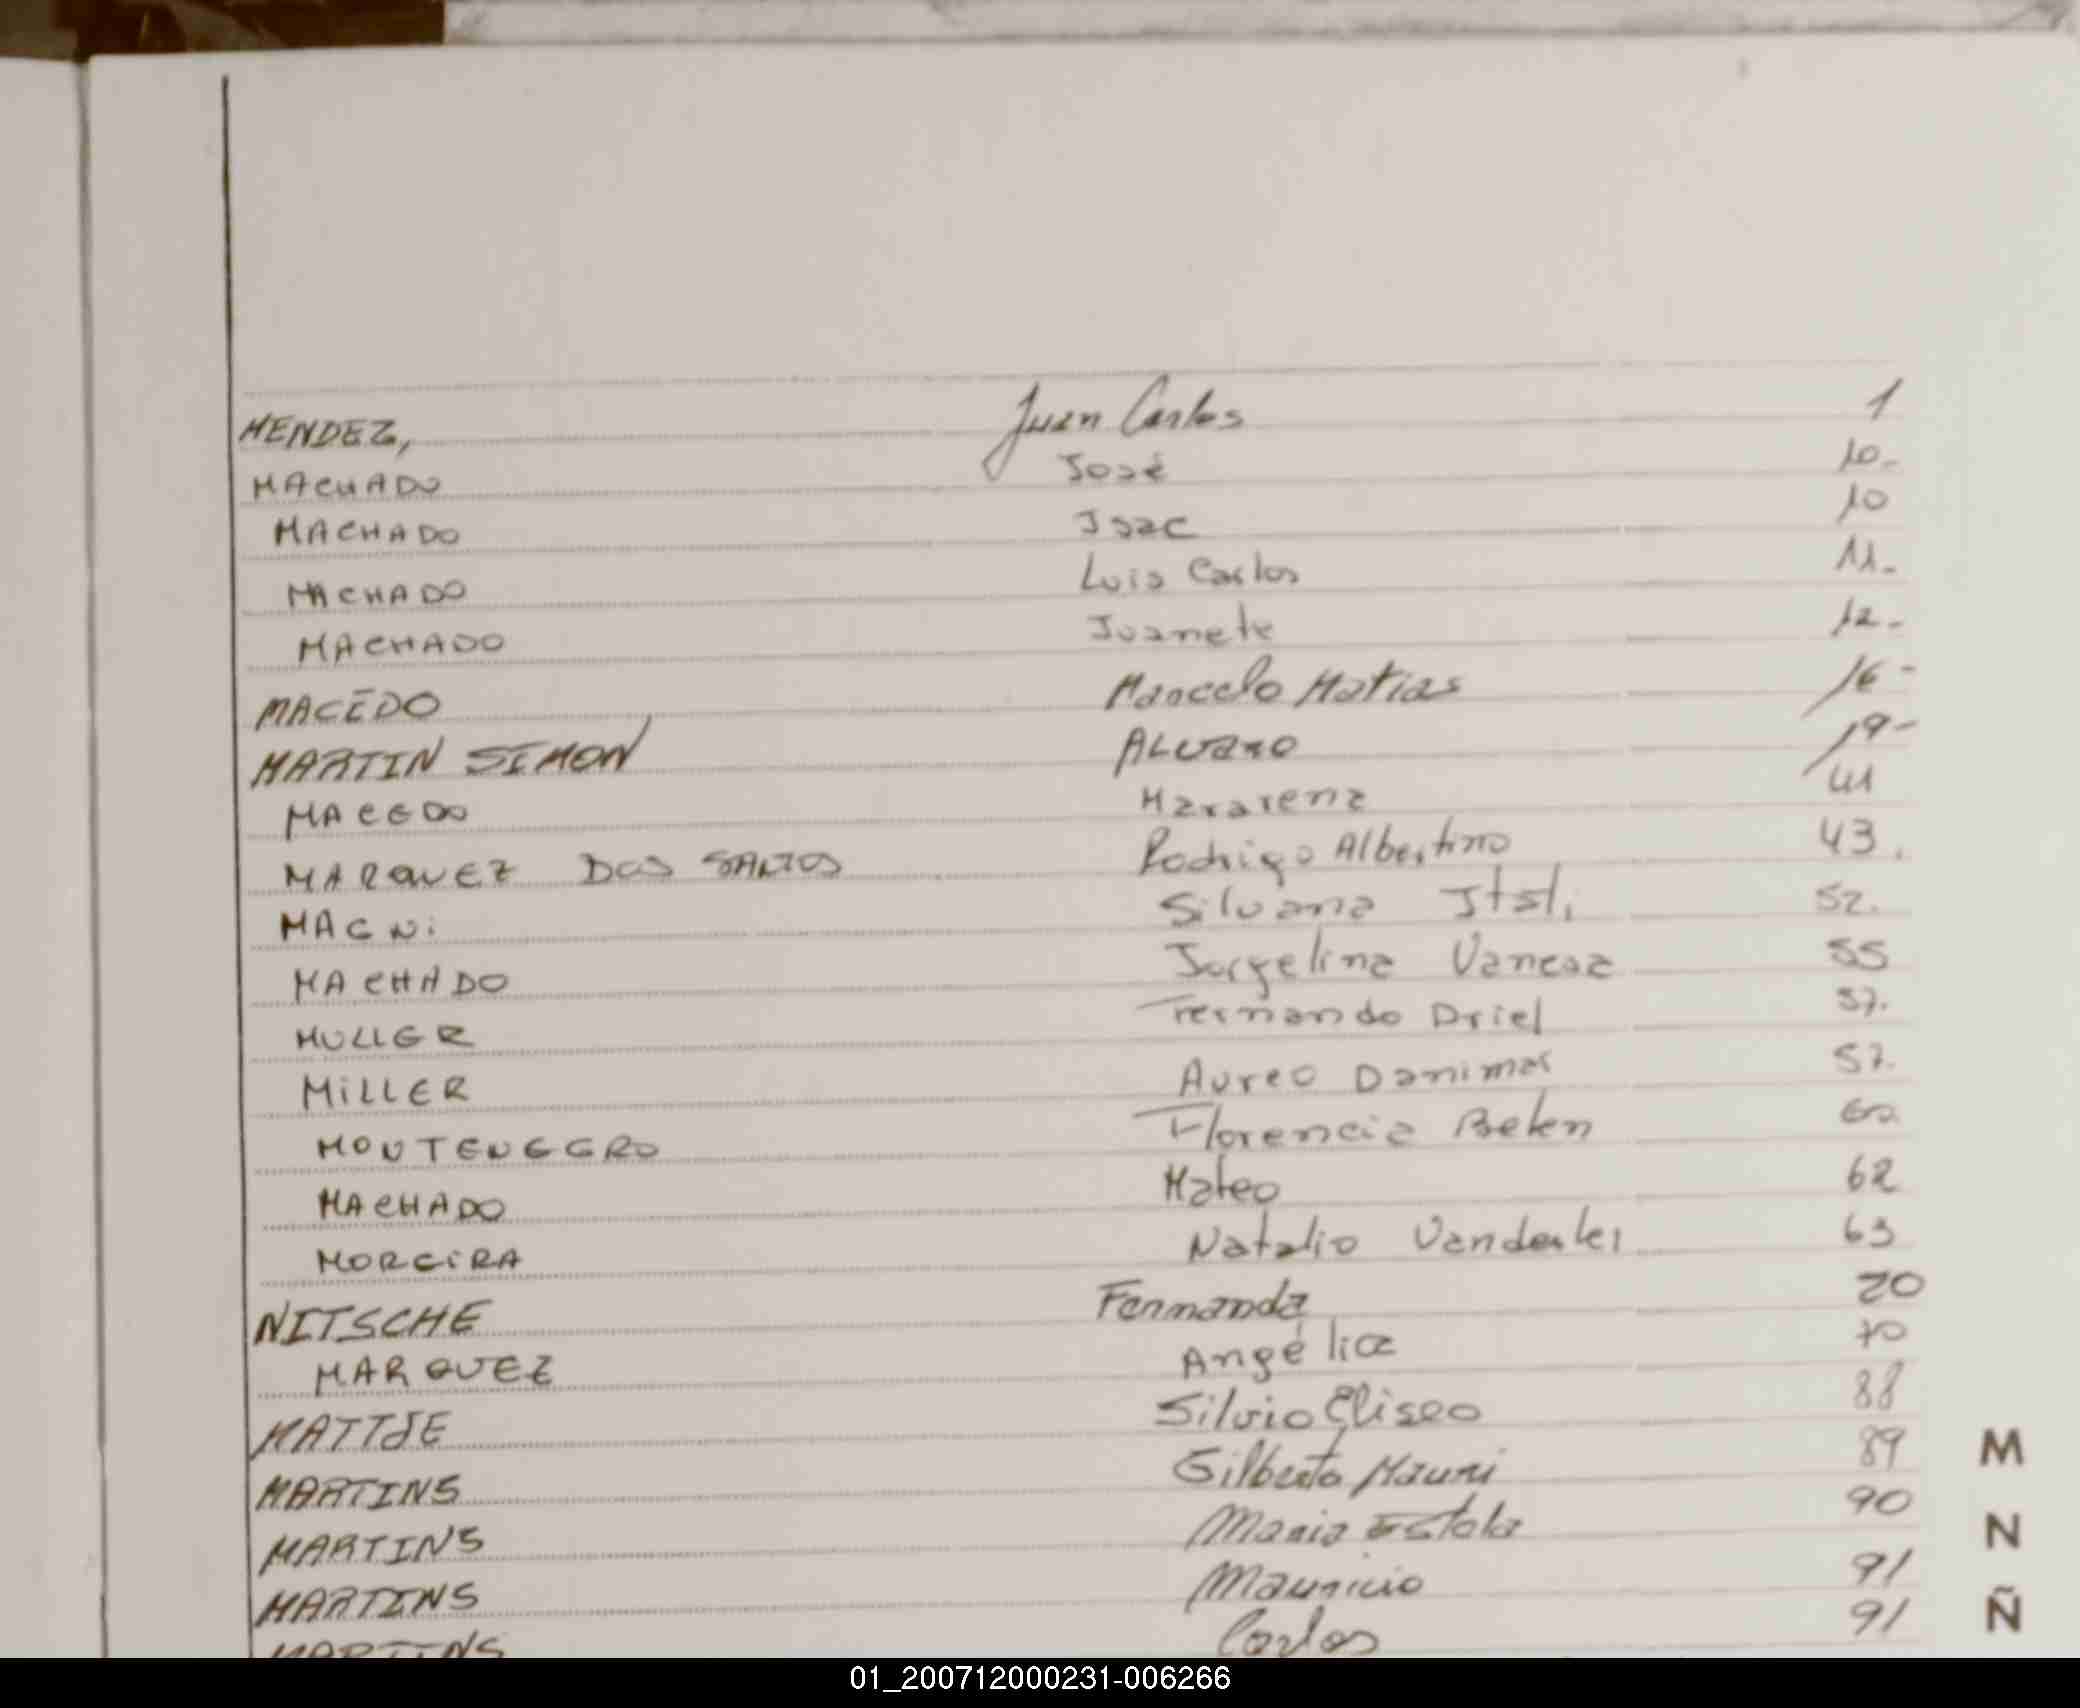 MENDEZ, Juan Carlos 1
MACHADO José 10-
MACHADO Isac 10
MACHADO Luis Carlos 11-
MACHADO Juanete 12-
MACEDO Marcelo Matias 16-
MARTIN SIMON ALVARO 19-
MACEDO Macarena 41
MARQUEZ DOS SANTOS Rodrigo Albertino 43.
MAGNi Silvana Itati 52.
MACHADO Jorgelina Vanesa 55
MULLER Fernando Oriel 57.
MiLLER Aureo Danimar 57.
MONTENEGRO Florencia Belen 60
MACHADO Mateo 62
MOREiRA Natalio Vanderlei 63
NITSCHE Fernanda 70
MARQUEZ Angélica 70
MATTJE Silvio Eliseo 88
MARTINS Gilberto Mauri 89
MARTINS Maria Estela 90
MARTINS Mauricio 91
MARTINS Carlos 91
M
N
Ñ
01_200712000231-006266